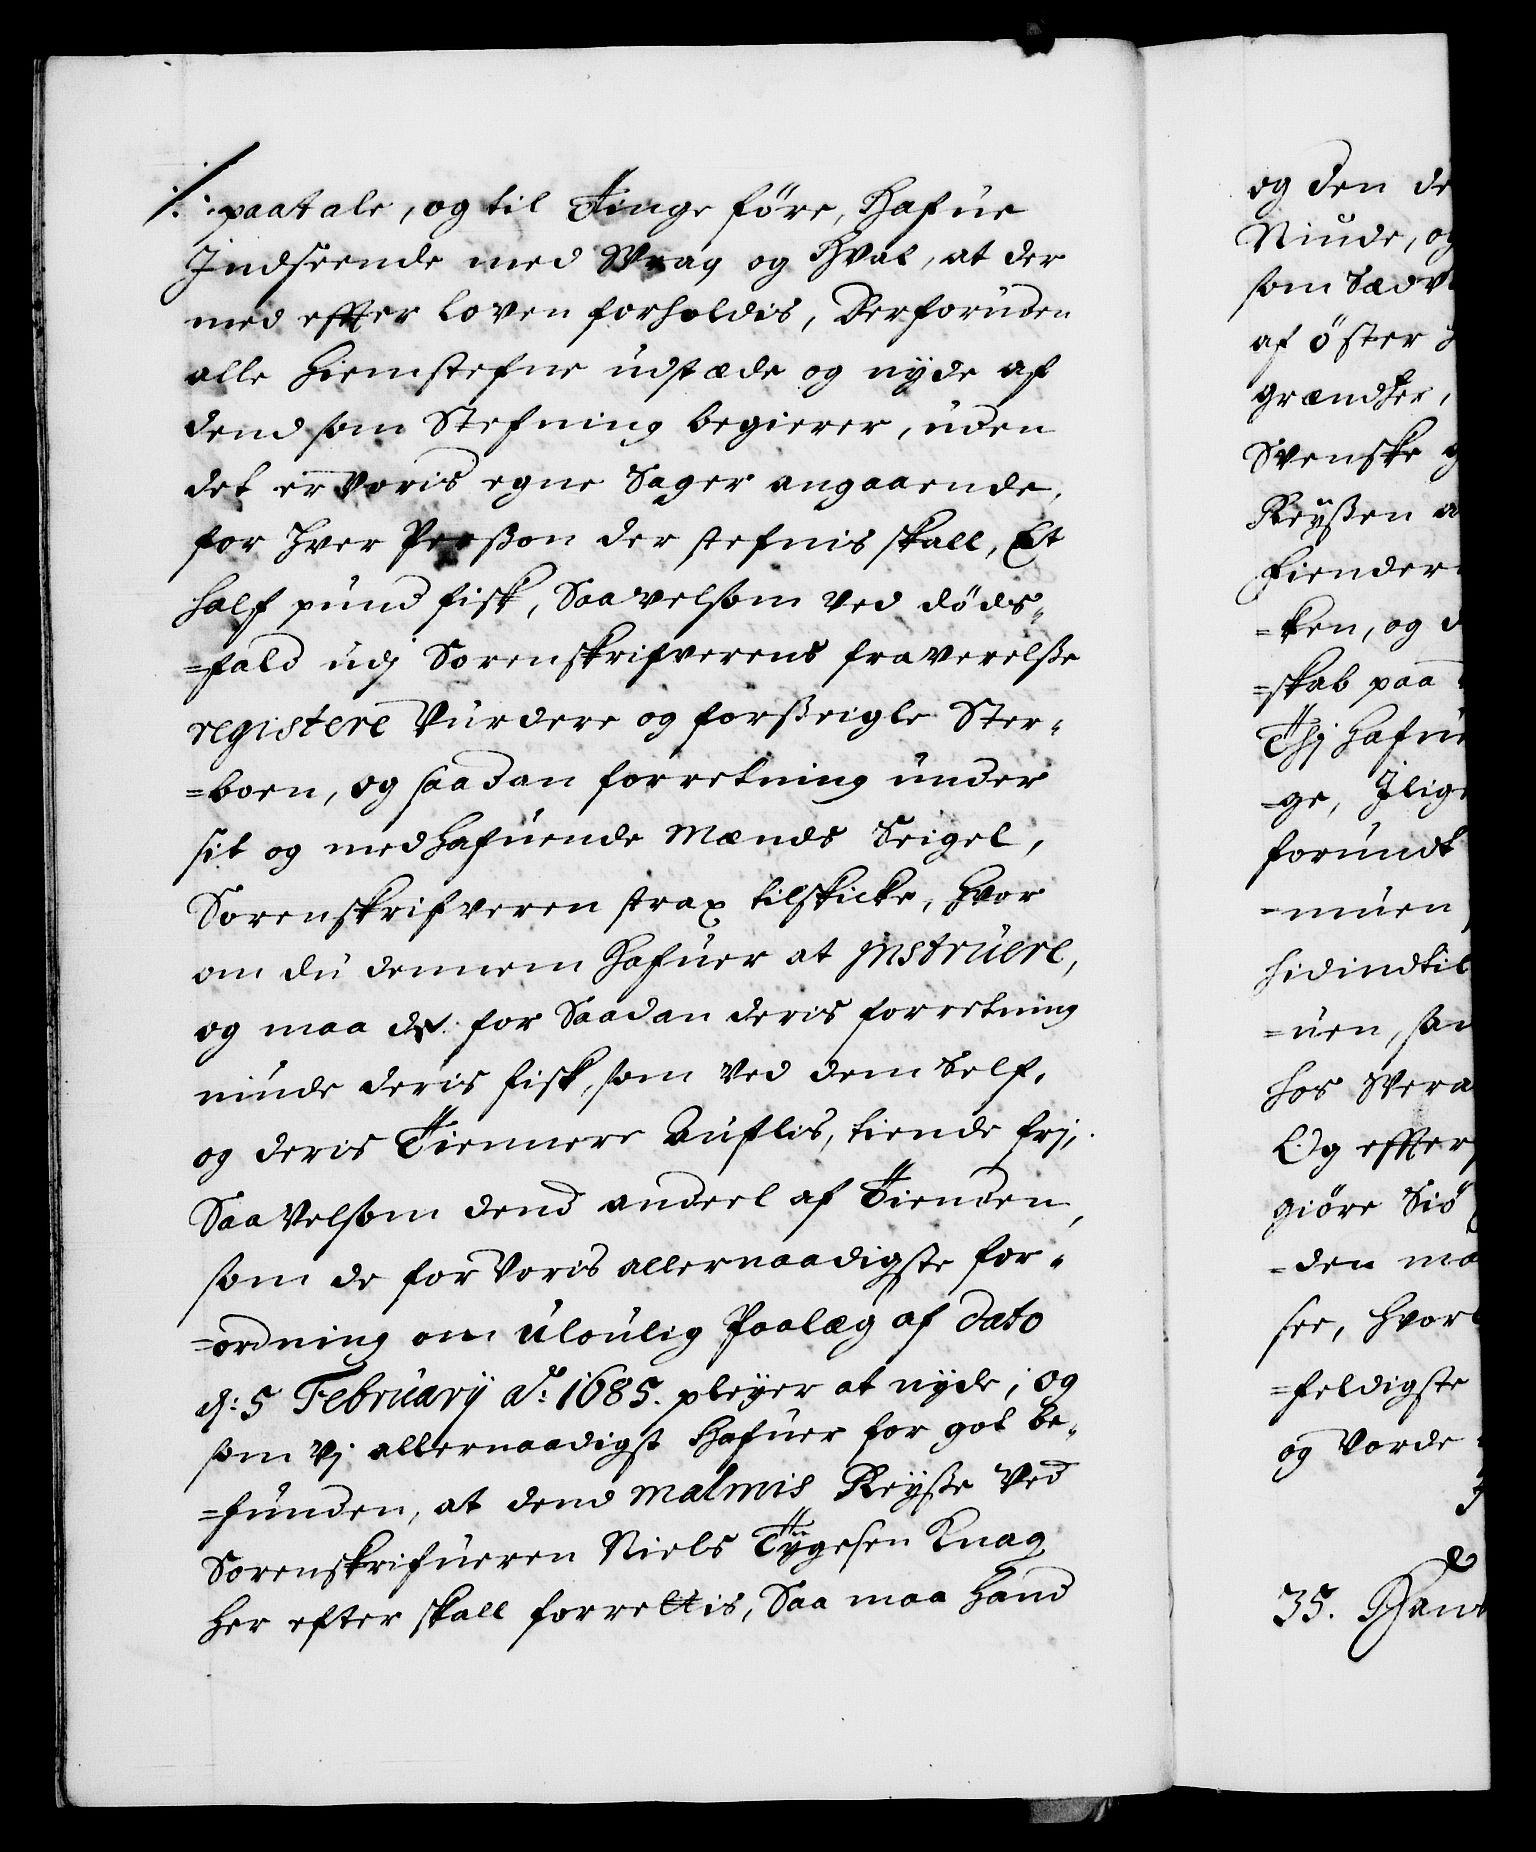 paatale, og til Tinge føre, Hafue
Indseende med Wrag og Hval, at der
med effter Loven forholdis, Derforuden
alle Hiemstefne udstæde og nyde af
dend som Stefning begierer, uden
det er Voris egne Sager angaaende,
for hver Perßon der stefnis skall, Et
half pund fisk, Saavelsom ved døds-
=fald udj Sorenskrifverens fraverelße
registere Vurdere og forßeigle Ster-
=boen, og saadan forretning under
sit og medhafuende Mænds Seigel,
Sorenskrifveren strax tilskicke, hvor
om du dennem Hafuer at instruere,
og maa de for Saadan deris forretning
niude deris fisk, som ved dem Self,
og deris Tiennere Auflis, tiende frj,
Saa Velsom dend andeel af Tienden,
som de for Voris allernaadigste for-
=ordning om uloulig Paalæg af dato
d: 5 February Ao: 1685. pleyer at nyde; og
som Vj allernaadigst Hafuer for got be-
=funden, at dend Malmis Reyße Ved
Sorenskrifueren Niels Tygesen Knag
her efter skall forrettis, Saa maa hand
og den de
Niude, og
som Sædv
af øster
grændßer,
Svenske
Reyßen
fiender
=ken, og d
=skab paa
Thj Hafue
=ge, Jlige
forundt
=muen
hidindtil
=uen, sa
hos Wera
Og effter
giøre Siø
=den ma
see, hvor
=feldigste
og Vorde
35. Hans